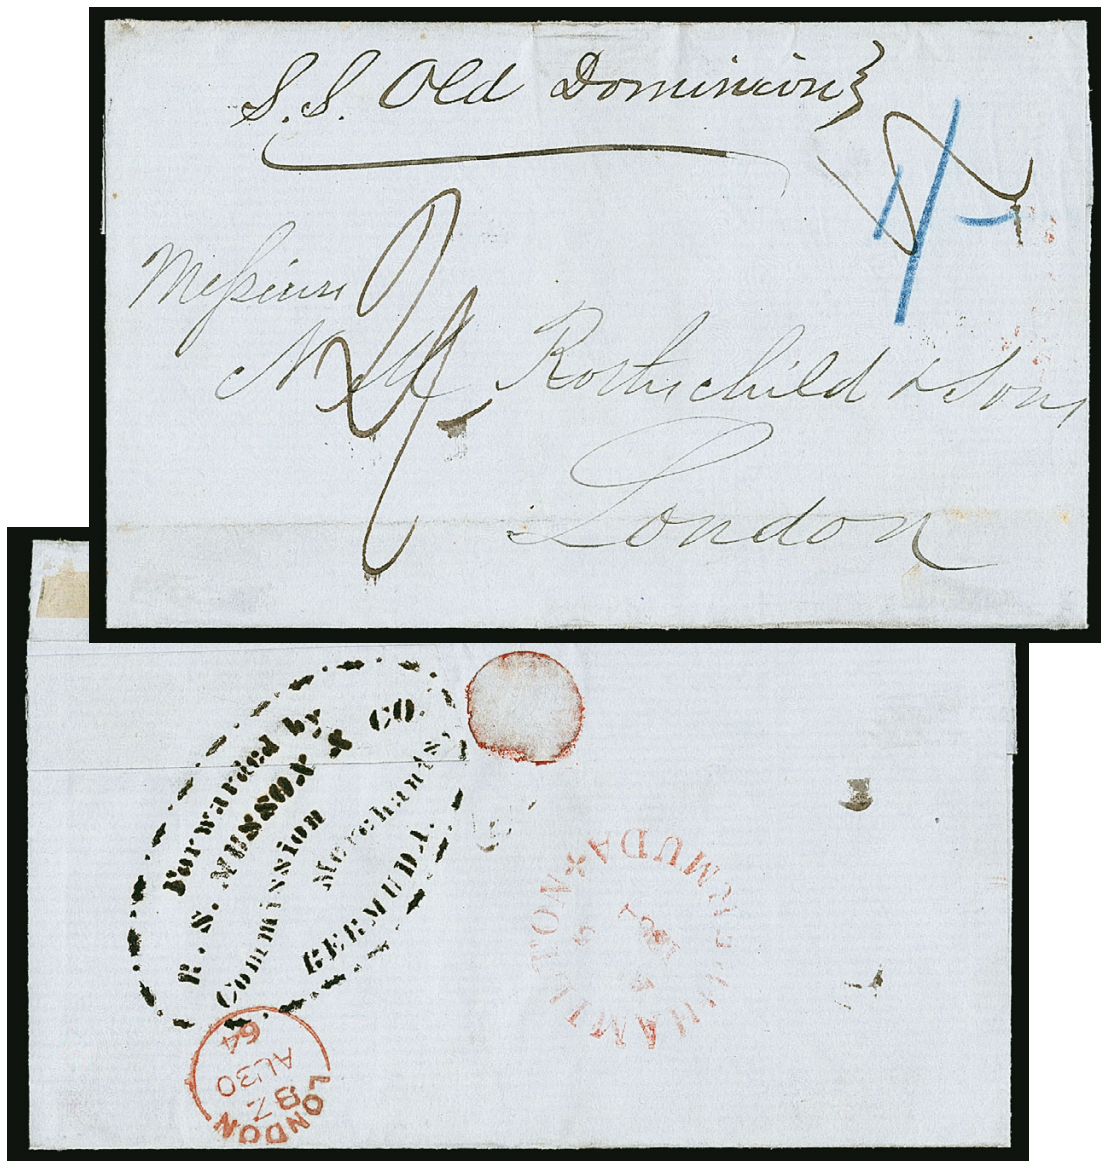 S.S. Old Dominion
1/-
Messieurs
N M Rothschild & Sons
London
Forwarded by
R. S. MUSSON & CO.
Commission Merchants,
BERMUDA.
HAMILTON BERMUDA
LONDON
BZ
AU 30
64